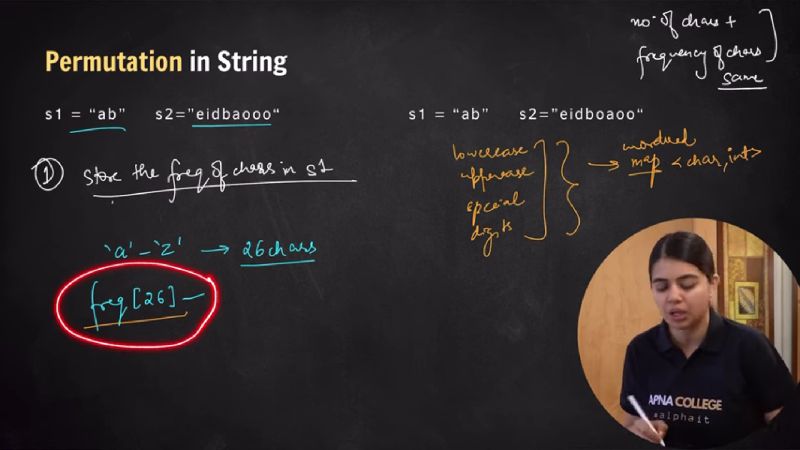 no. of chars +
frequency of chars
same
Permutation in String
s1 = “ab”   s2=”eidbaooo“
s1 = “ab”   s2=”eidboaoo“
① store the freq. of chars in s1
lowercase
uppercase
special
digits
unordered
→ map <char, int>
'a' - 'z' → 26 chars
freq[26] -
APNA COLLEGE
#alphait